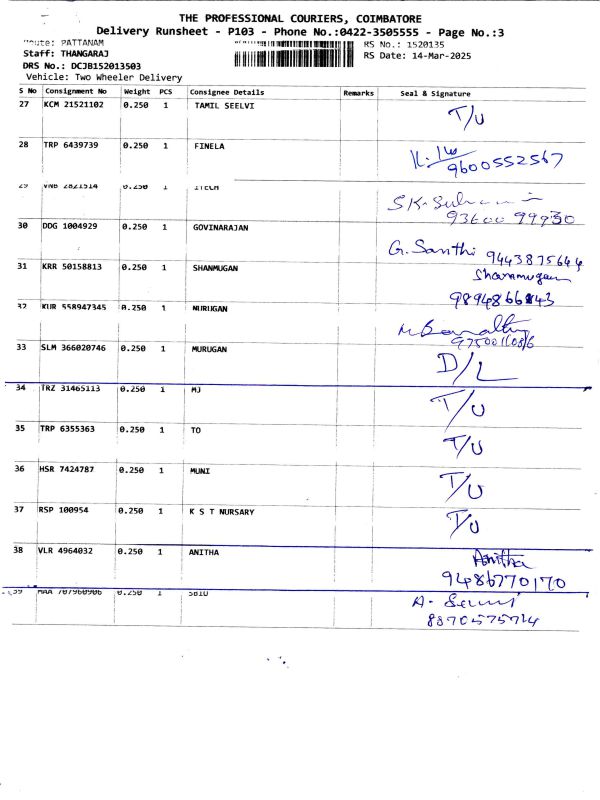 THE PROFESSIONAL COURIERS, COIMBATORE
Delivery Runsheet - P103 - Phone No.:0422-3505555 - Page No.:3
Route: PATTANAM RS No.: 1520135
Staff: THANGARAJ RS Date: 14-Mar-2025
DRS No.: DCJB152013503
Vehicle: Two Wheeler Delivery
S No Consignment No Weight PCS Consignee Details Remarks Seal & Signature
27 KCM 21521102 0.250 1 TAMIL SEELVI T/U
28 TRP 6439739 0.250 1 FINELA
9600552567
29 VNB 2821514 0.250 1 ITECH
93600 99930
30 DDG 1004929 0.250 1 GOVINARAJAN G. Santhi 9443875644
31 KRR 50158813 0.250 1 SHANMUGAN Shanmugan
9894866843
32 KUR 558947345 0.250 1 NURUGAN
33 SLM 366020746 0.250 1 MURUGAN D/L
34 TRZ 31465113 0.250 1 MJ T/U
35 TRP 6355363 0.250 1 TO T/U
36 HSR 7424787 0.250 1 MUNI T/U
37 RSP 100954 0.250 1 K S T NURSARY T/U
38 VLR 4964032 0.250 1 ANITHA Anitha
9486770170
39 MAA 707960906 0.250 1 SBIO
8870575724